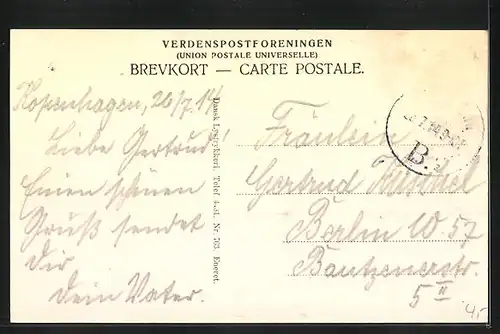 VERDENSPOSTFORENINGEN
(UNION POSTALE UNIVERSELLE)
BREVKORT — CARTE POSTALE.
Kopenhagen, 26/7.14
Liebe Gertrud!
Einen schönen
Gruß sendet
dir
dein Vater.
Dansk Lystrykkeri. Telef. 4541. Nr. 703. Eneret.
Fräulein
Gertrud
Berlin W. 57
Bautzenerstr.
5 II
B.